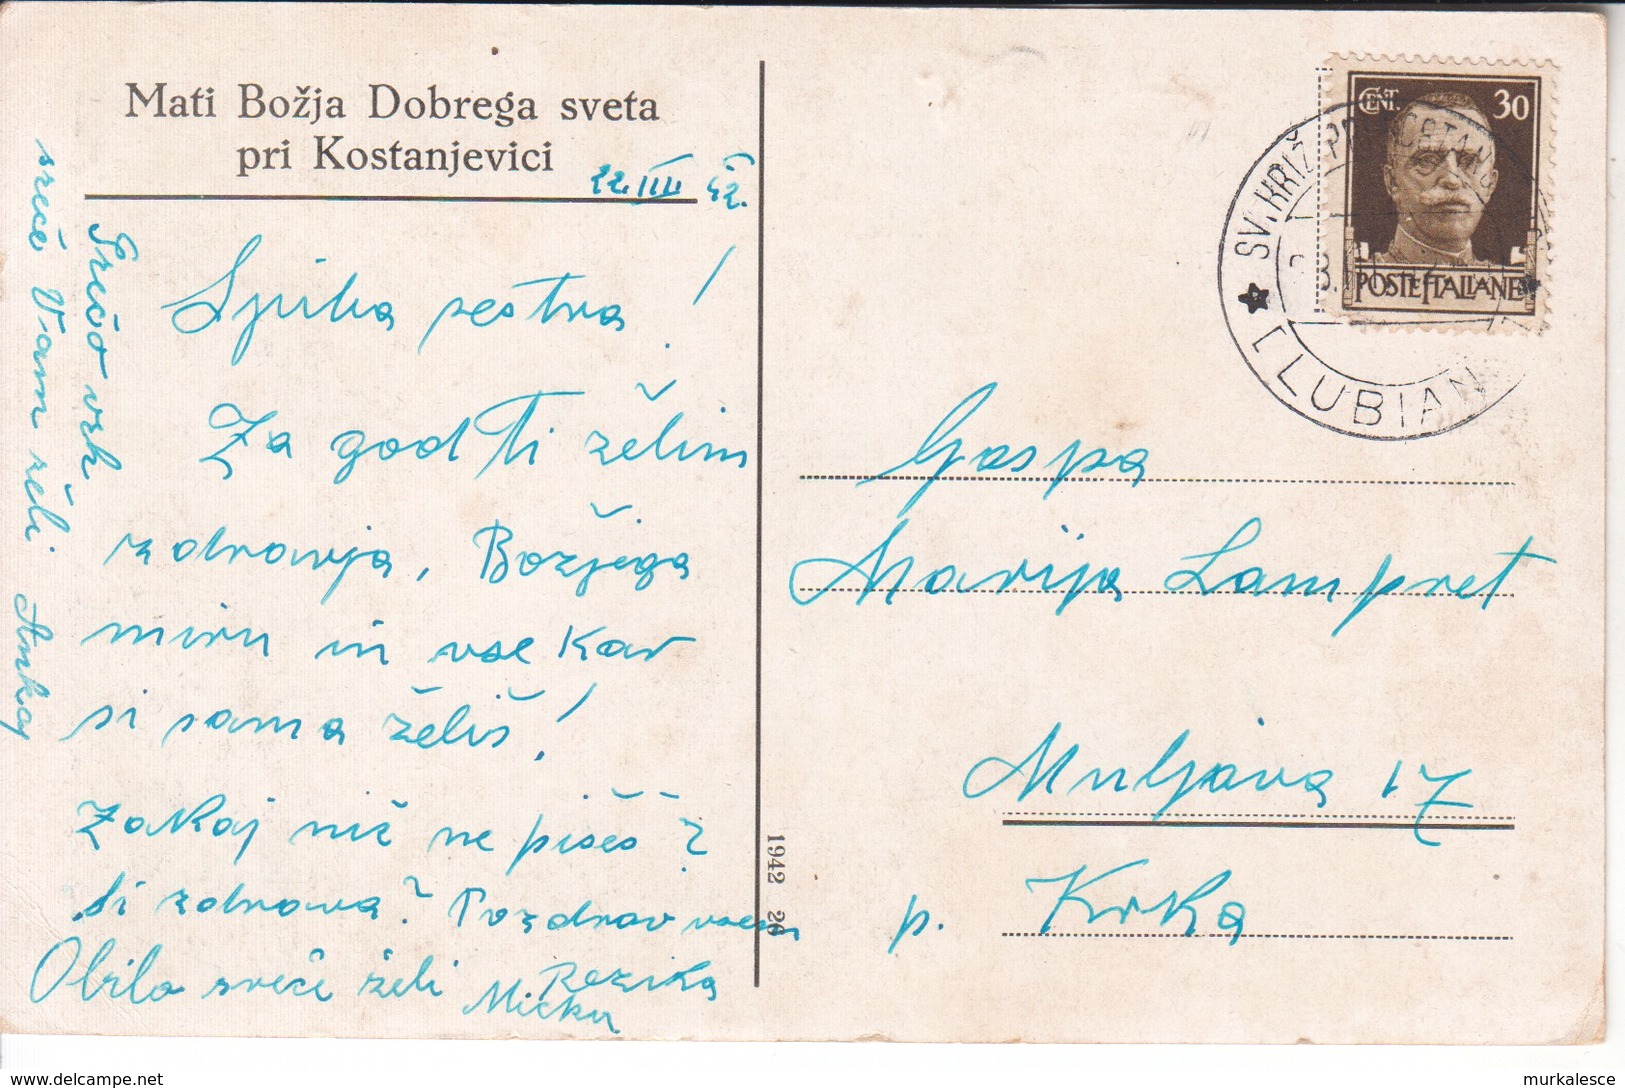 Mati Božja Dobrega sveta
pri Kostanjevici
22. III. 42.
Ljuba sestra!
Za god Ti želim
zdravja, Božjega
miru in vse kar
si sama želiš!
Zakaj nič ne pišeš?
Si zdrava? Pozdrav vsem
Rezika
Obilo sreče želi Micka
sreče Vam želi
CENT. 30
POSTE ITALIANE
SV. KRIŽ
LUBIAN
Gospa
Marija Lampret
Muljava 17
p. Krka
1942 26
delcampe.net
murkalesce